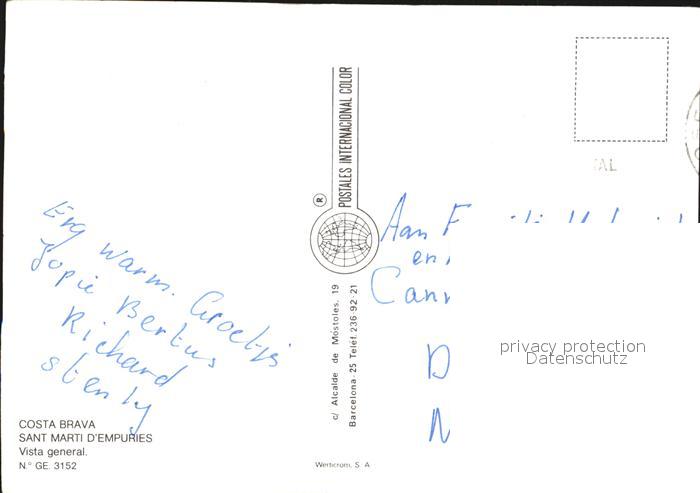 Erg warm. Groetjes
Jopie Bertus
Richard
Stenly
COSTA BRAVA
SANT MARTI D'EMPURIES
Vista general.
N.° GE. 3152
POSTALES INTERNACIONAL COLOR
®
c/ Alcalde de Móstoles, 19
Barcelona-25 Teléf. 236-92-21
Werticrom, S. A
Aan F
en
Cann
D
N
AL
privacy protection
Datenschutz